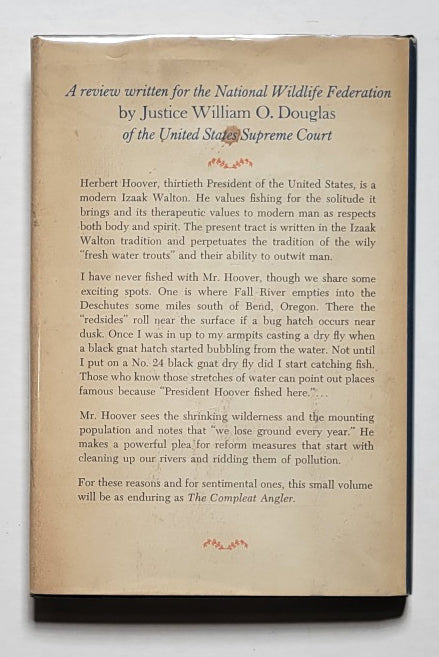 A review written for the National Wildlife Federation
by Justice William O. Douglas
of the United States Supreme Court
Herbert Hoover, thirtieth President of the United States, is a
modern Izaak Walton. He values fishing for the solitude it
brings and its therapeutic values to modern man as respects
both body and spirit. The present tract is written in the Izaak
Walton tradition and perpetuates the tradition of the wily
“fresh water trouts” and their ability to outwit man.
I have never fished with Mr. Hoover, though we share some
exciting spots. One is where Fall River empties into the
Deschutes some miles south of Bend, Oregon. There the
“redsides” roll near the surface if a bug hatch occurs near
dusk. Once I was in up to my armpits casting a dry fly when
a black gnat hatch started bubbling from the water. Not until
I put on a No. 24 black gnat dry fly did I start catching fish.
Those who know those stretches of water can point out places
famous because “President Hoover fished here.”...
Mr. Hoover sees the shrinking wilderness and the mounting
population and notes that “we lose ground every year.” He
makes a powerful plea for reform measures that start with
cleaning up our rivers and ridding them of pollution.
For these reasons and for sentimental ones, this small volume
will be as enduring as The Compleat Angler.